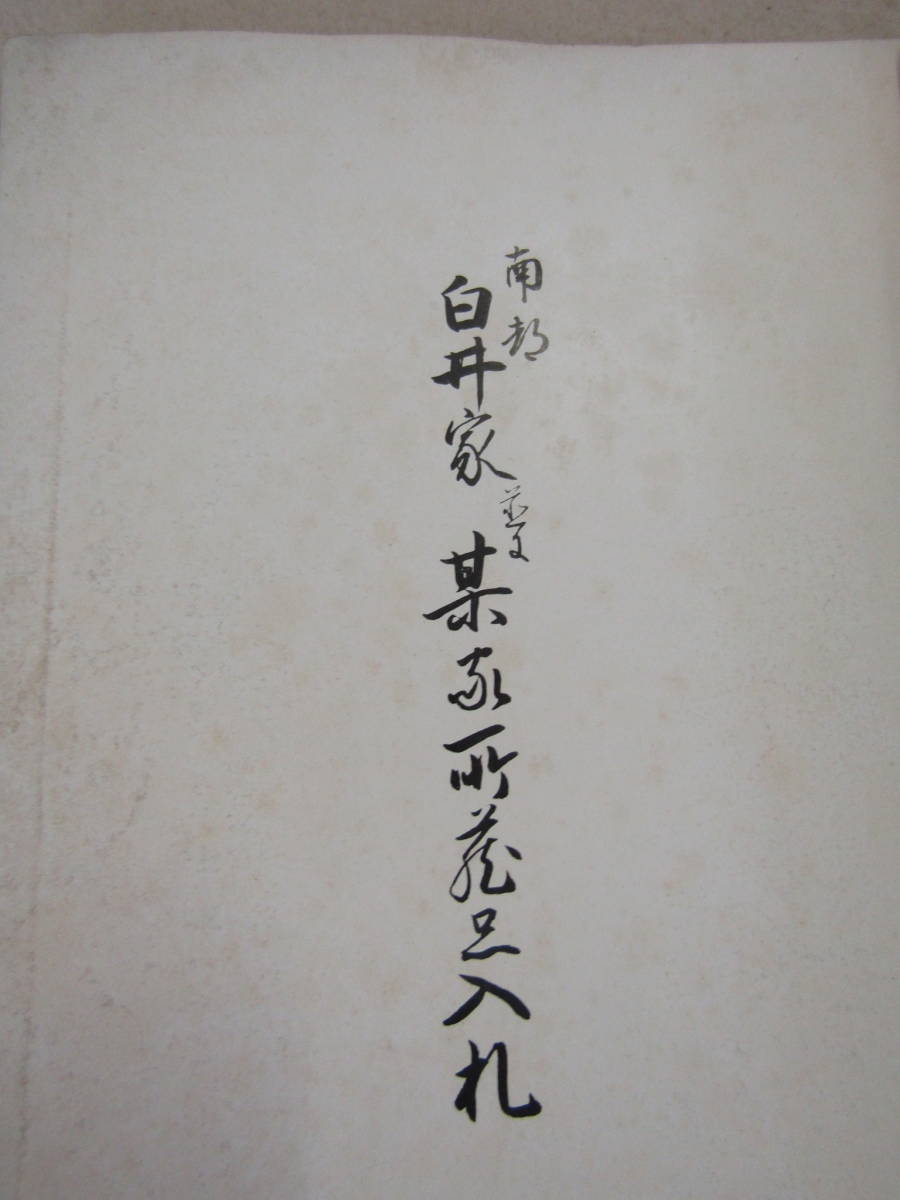 南都
白井家並ニ某家所蔵品入札